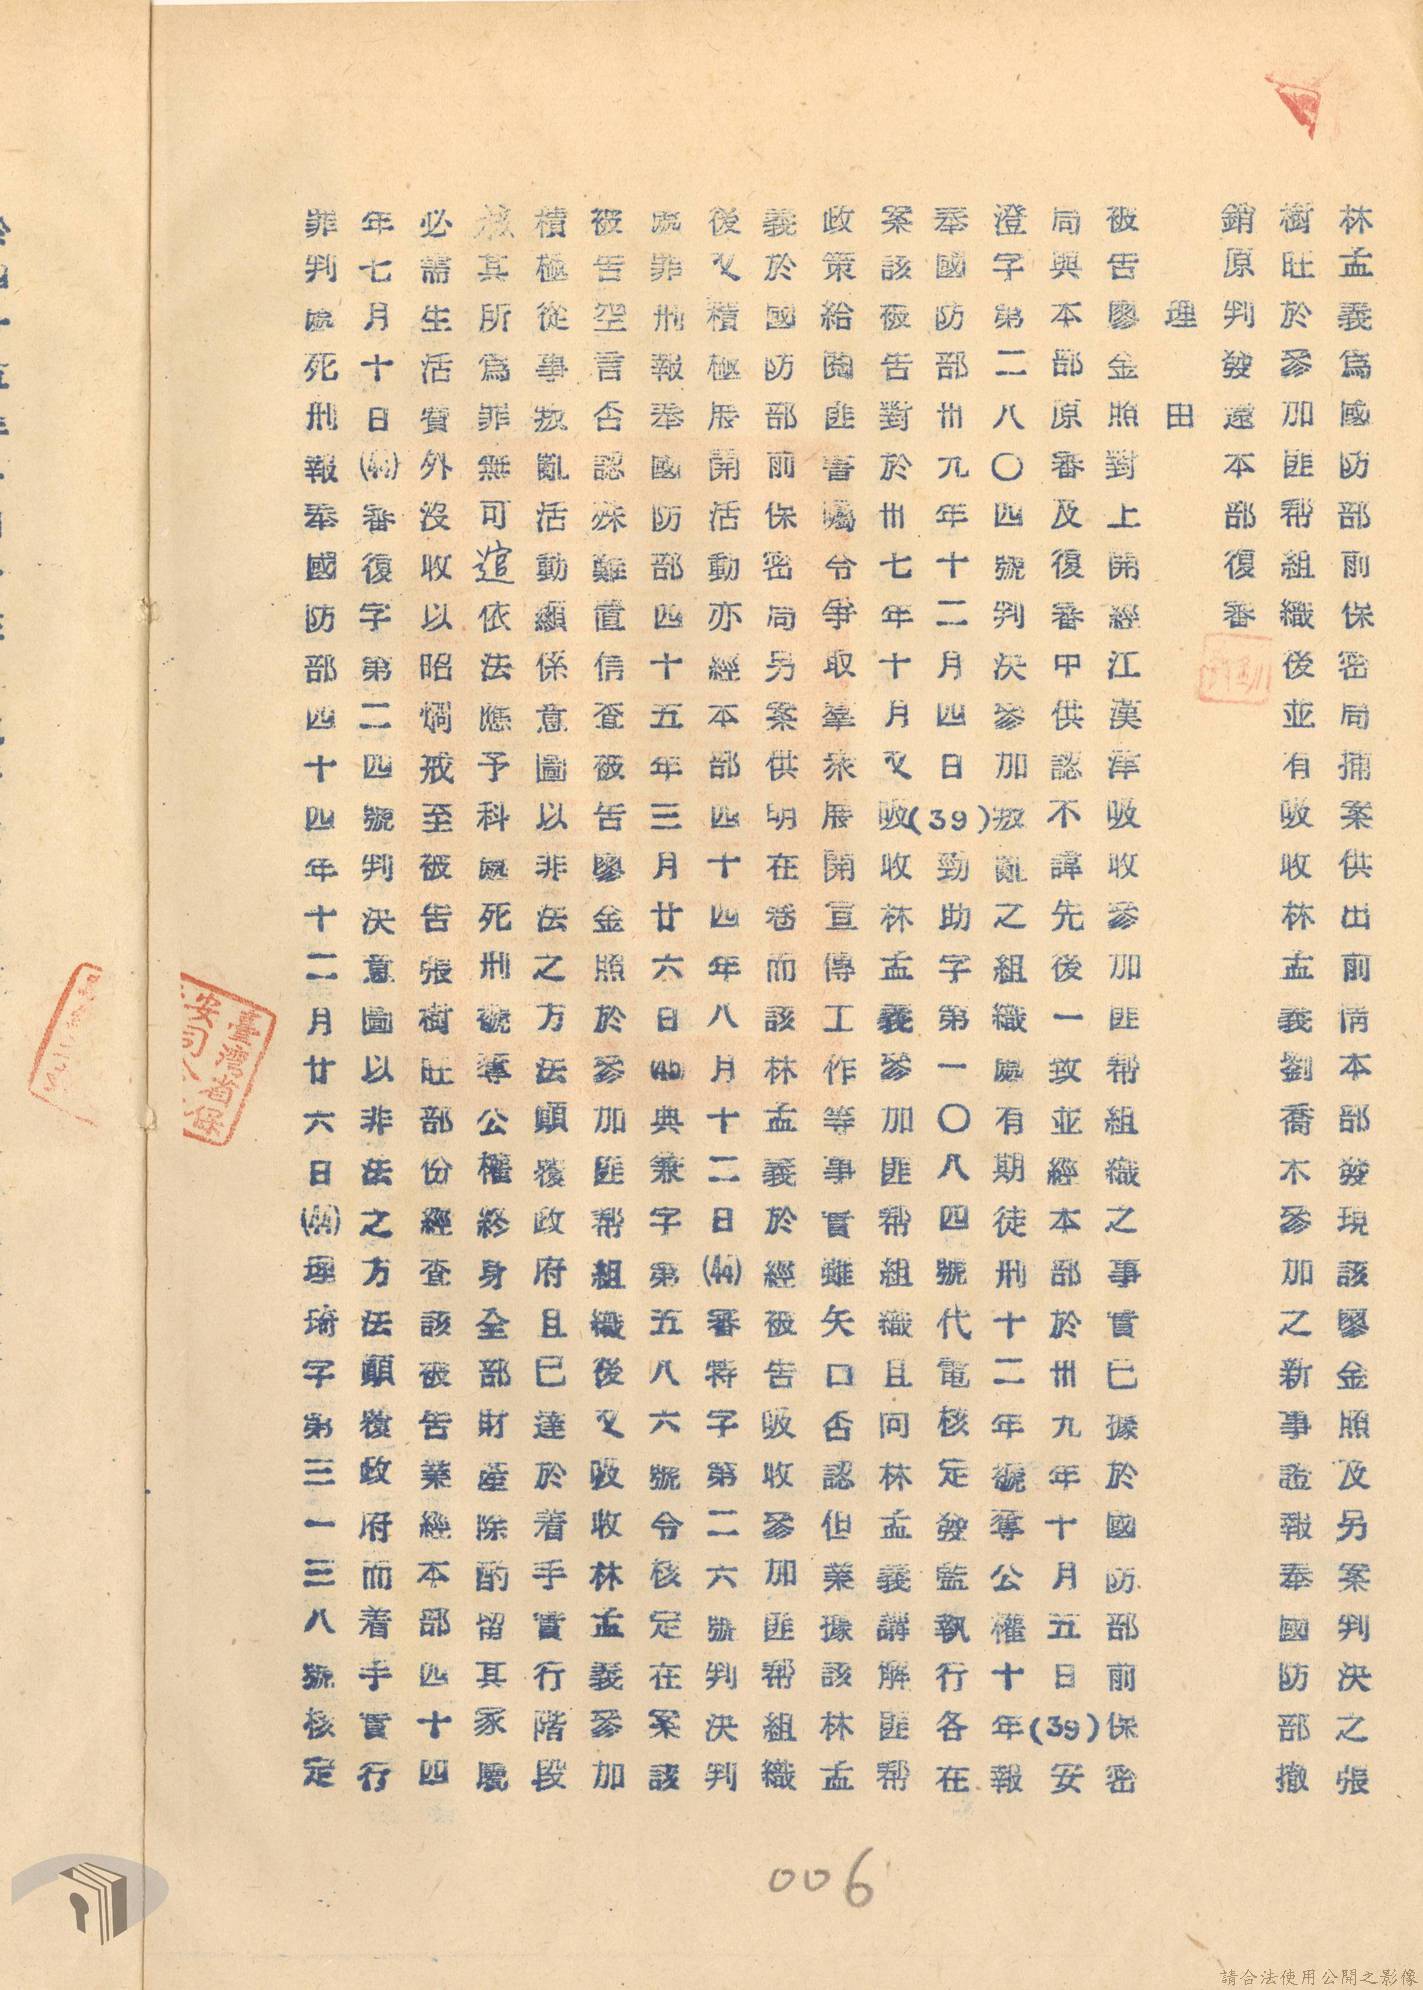 林孟義爲國防部前保密局捕案供出前情本部發現該廖金照及另案判決之張
樹旺於參加匪幇組織後並有吸收林孟義劉喬木參加之新事證報奉國防部撤
銷原判發還本部復審
理由
被告廖金照對上開經江漢津吸收參加匪幇組織之事實已據於國防部前保密
局與本部原審及復審中供認不諱先後一致並經本部於卅九年十月五日(39)安
澄字第二八〇四號判決參加叛亂之組織處有期徒刑十二年褫奪公權十年報
奉國防部卅九年十二月四日(39)勁助字第一〇八四號代電核定發監執行各在
案該被告對於卅七年十月又吸收林孟義參加匪幇組織且向林孟義講解匪幇
政策給閱匪書囑令爭取羣衆展開宣傳工作等事實雖矢口否認但業據該林孟
義於國防部前保密局另案供明在卷而該林孟義於經被告吸收參加匪幇組織
後又積極展開活動亦經本部四十四年八月十二日(44)審特字第二六號判決判
處罪刑報奉國防部四十五年三月廿六日(45)典兼字第五八六號令核定在案該
被告空言否認殊難置信查被告廖金照於參加匪幇組織後又吸收林孟義參加
積極從事叛亂活動顯係意圖以非法之方法顚覆政府且已達於着手實行階段
核其所爲罪無可逭依法應予科處死刑褫奪公權終身全部財產除酌留其家屬
必需生活費外沒收以昭烱戒至被告張樹旺部份經查該被告業經本部四十四
年七月十日(44)審復字第二四號判決意圖以非法之方法顚覆政府而着手實行
罪判處死刑報奉國防部四十四年十二月廿六日(44)理琦字第三一三八號核定
臺灣省保
安司令
006
請合法使用公開之影像